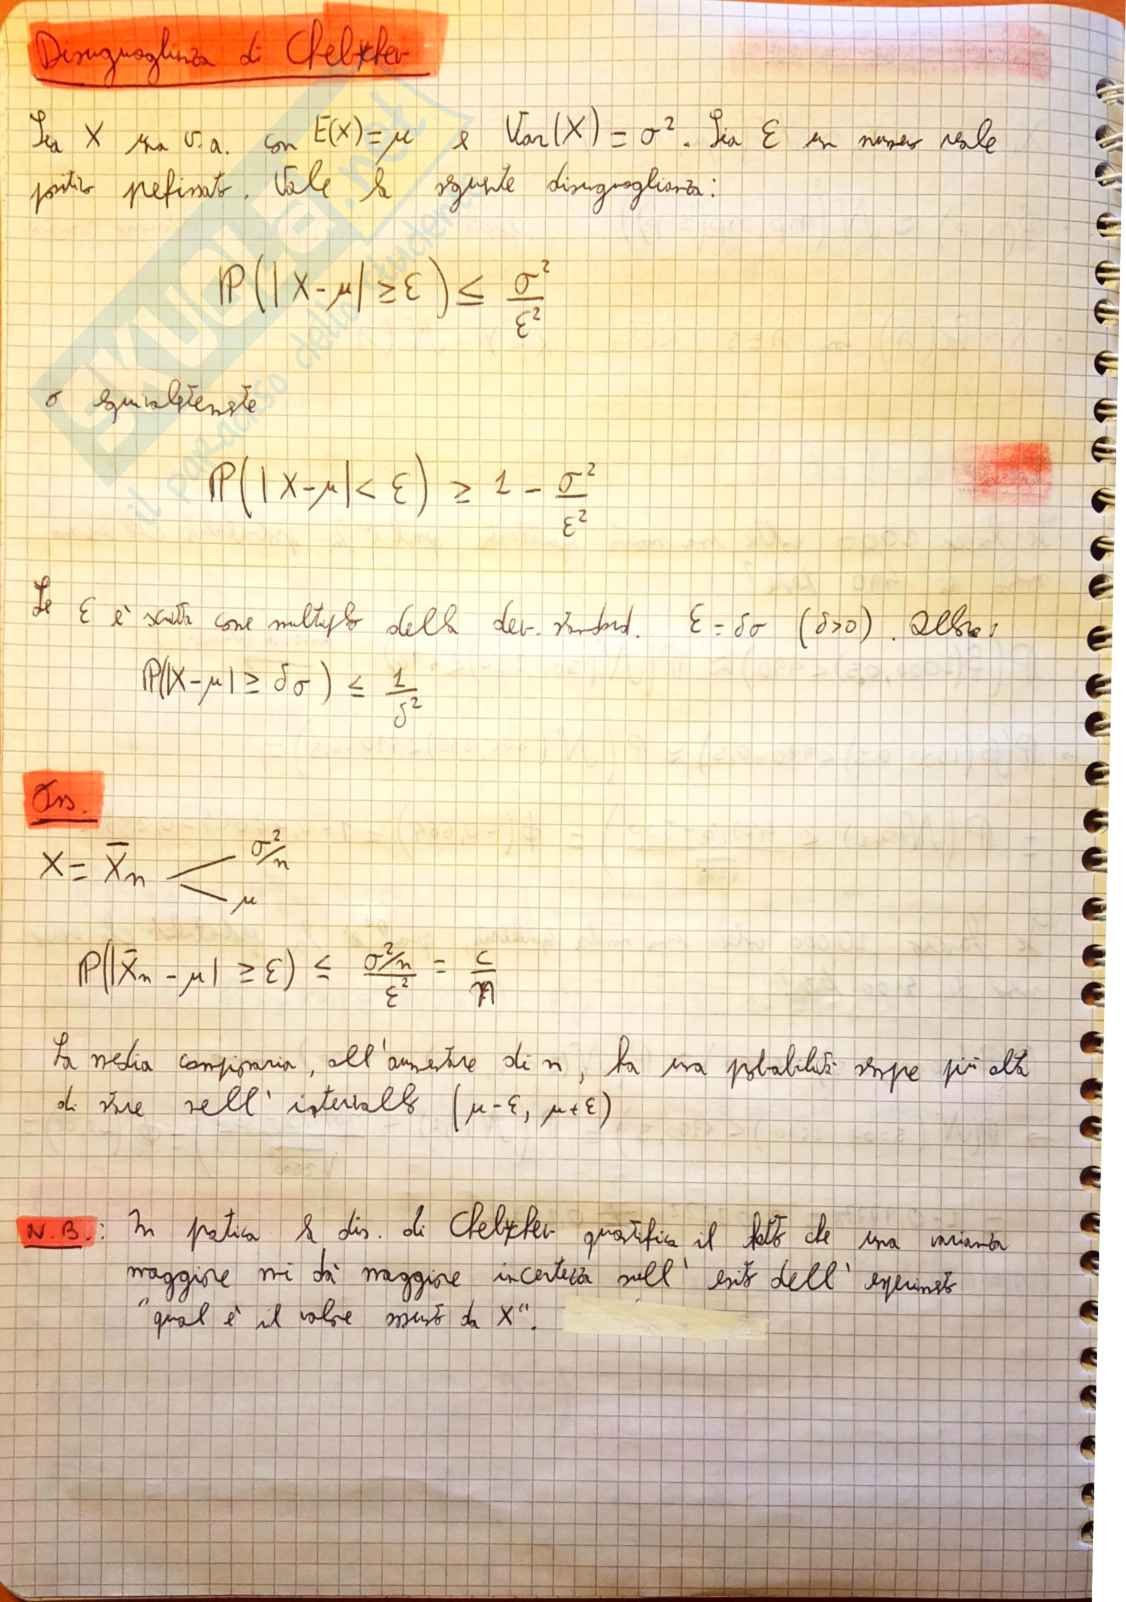 Disuguaglianza di Chebychev
Sia X una v.a. con E(X) = μ e Var(X) = σ². Sia ε un numero reale
positivo prefissato. Vale la seguente disuguaglianza:
ℙ(|X-μ| ≥ ε) ≤ σ²/ε²
o equivalentemente
ℙ(|X-μ| < ε) ≥ 1 - σ²/ε²
Se ε è scelto come multiplo della dev. standard. ε = δσ (δ>0). Allora:
ℙ(|X-μ| ≥ δσ) ≤ 1/δ²
Oss.
X = X̄n σ²/n
μ
ℙ(|X̄n - μ| ≥ ε) ≤ (σ²/n)/ε² = c/n
La media campionaria, all'aumentare di n, ha una probabilità sempre più alta
di stare nell'intervallo (μ-ε, μ+ε)
N.B.: In pratica la dis. di Chebychev quantifica il fatto che una varianza
maggiore mi dà maggiore incertezza sull'esito dell'esperimento
"qual è il valore assunto da X".
SKUOLA.net
il paradiso dello studente